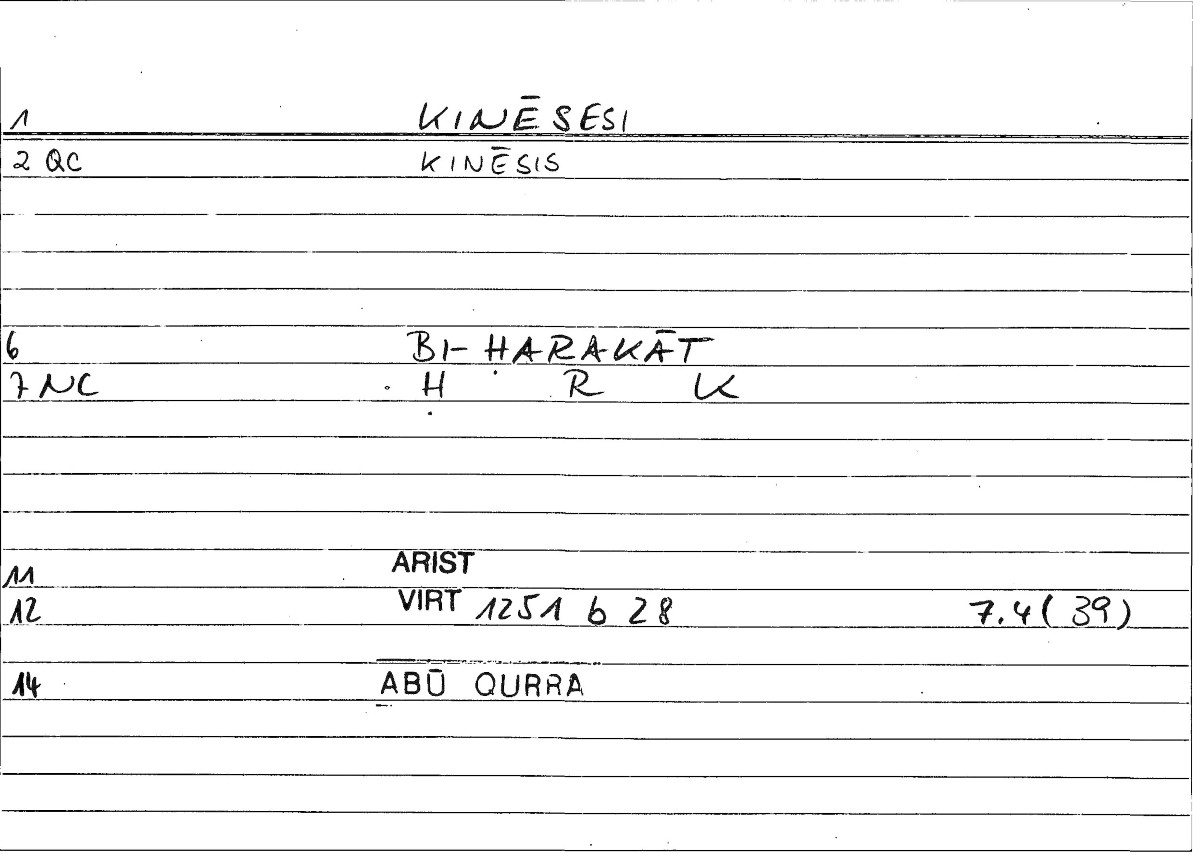 1 KINĒSESI
2 QC KINĒSIS
6 BI-ḤARAKĀT
7 NC Ḥ R K
11 ARIST
12 VIRT 1251 b 28 7.4(39)
14 ABŪ QURRA